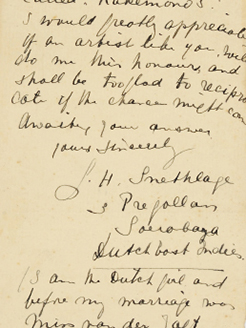 called "
I would greatly appreciate
if an artist like you will
do me this honour, and
shall be too glad to recipro
cate if the chance might can
Awaiting your answer
yours sincerely
J. H. Snethlage
3 Pregollan
Soerobaya
Dutch East Indies
I am the Dutch girl and
before my marriage was
Miss van der